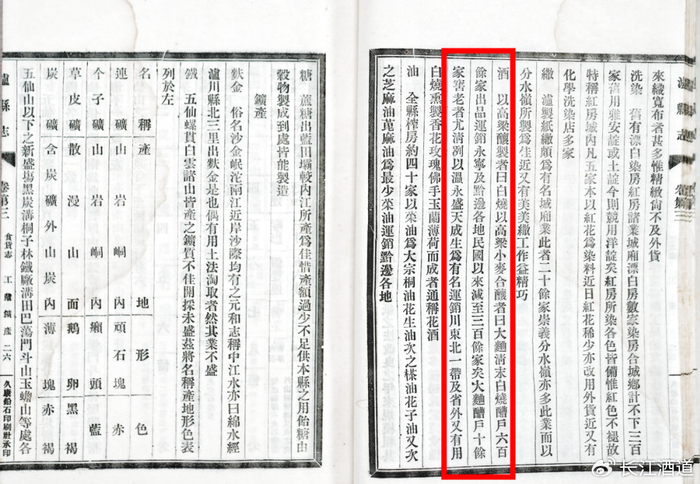 來織寬布者甚多惟精緻尚不及外貨
洗染 舊有漂白染房紅房諸業城廂漂白房數家染房合城鄉計不下三百
家舊用雅安靛或土靛今則競用洋靛矣紅房所染各色皆備惟紅色不褪故
特稱紅房城內凡五家本以紅花為染料近日紅花稀少亦改用外貨近又有
化學洗染店多家
繖 瀘製紙繖頗為有名城廂業此者二十餘家崇義分水嶺亦多此業而以
分水嶺所製為生近又有美美繖工作益精巧
酒 以高粱釀製者曰白燒以高粱小麥合釀者曰大麯清末白燒糟戶六百
餘家出品運銷永寧及黔邊各地民國以來減至三百餘家矣大麯糟戶十餘
家窖老者尤清洌以溫永盛天成生為有名運銷川東北一帶及省外又有用
白燒熏製香花玫瑰佛手玉蘭薄荷而成者通稱花酒
油 全縣榨房約四十家以菜油為大宗桐油花生油次之樣油花子油又次
之芝麻油萞麻油為最少菜油運銷黔邊各地
糖 蔗糖出藍田壩較內江所產為佳惜產額過少不足供本縣之用飴糖由
穀物製成到處皆能製造
鑛產
麩金 俗名沙金岷沱南江近岸沙際均有之元和志稱中江水亦曰綿水經
瀘川縣北三里出麩金是也偶有用土法淘取者然其業不盛
鐵 五仙螺貫白雲諸山皆產之鑛質不佳開採未盛茲將名稱產地形色表
列於左
名稱 產地 形色
連鑛 山岩峒內 頑石塊赤
个子鑛 山岩峒內 癩頭藍
草皮鑛 散漫山面 鵝卵黑褐
炭鑛 含炭鑛外山炭內 薄塊赤褐
五仙山以下之新盛場黑炭溝桐子林鐵廠溝田巴蕩門斗山玉蟾山等處各
瀘縣志 卷第三 食貨志 工業 鑛產 二六 久康鉛石印刷社承印
瀘縣志
@长江酒道